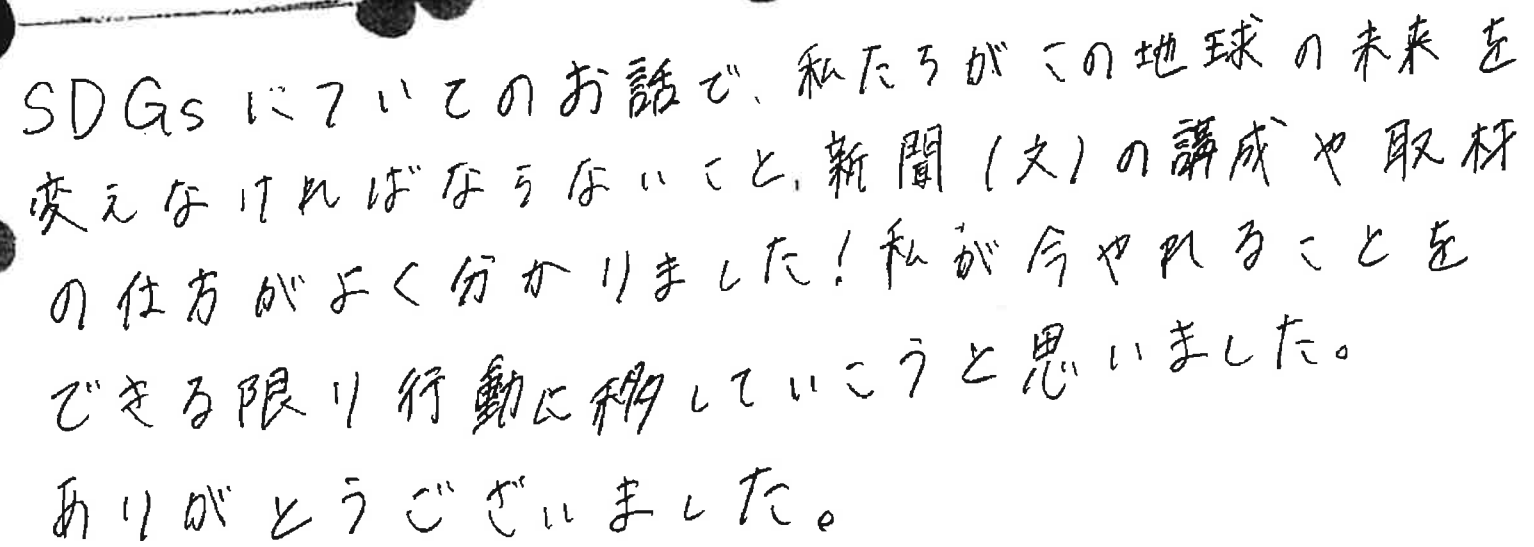 SDGsについてのお話で、私たちがこの地球の未来を
変えなければならないこと、新聞(文)の講成や取材
の仕方がよく分かりました!私が今やれることを
できる限り行動に移していこうと思いました。
ありがとうございました。